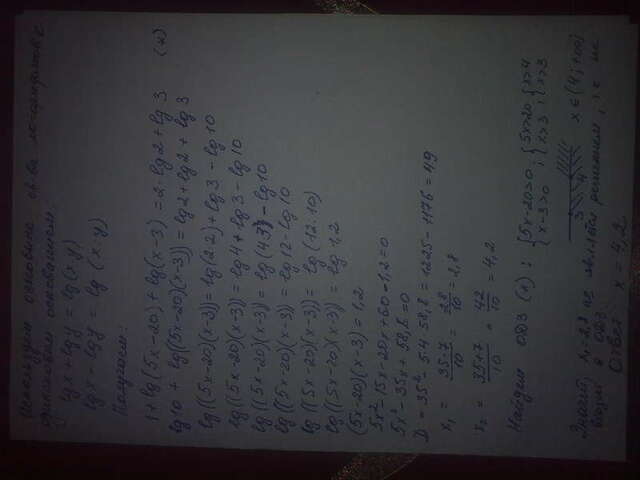 Используем основные св-ва логарифмов с
одинаковым основанием:
lg x + lg y = lg (x·y)
lg x - lg y = lg (x:y)
Получаем:
1 + lg (5x-20) + lg (x-3) = 2·lg 2 + lg 3 (*)
lg 10 + lg ((5x-20)(x-3)) = lg 2 + lg 2 + lg 3
lg ((5x-20)(x-3)) = lg (2·2) + lg 3 - lg 10
lg ((5x-20)(x-3)) = lg 4 + lg 3 - lg 10
lg ((5x-20)(x-3)) = lg (4·3) - lg 10
lg ((5x-20)(x-3)) = lg 12 - lg 10
lg ((5x-20)(x-3)) = lg (12:10)
lg ((5x-20)(x-3)) = lg 1,2
(5x-20)(x-3) = 1,2
5x² - 15x - 20x + 60 - 1,2 = 0
5x² - 35x + 58,8 = 0
D = 35² - 5·4·58,8 = 1225 - 1176 = 49
x₁ = 35-7/10 = 28/10 = 2,8
x₂ = 35+7/10 = 42/10 = 4,2
Найдем ОДЗ (*): {5x-20>0 x-3>0; {5x>20 x>3; {x>4 x>3
3 4 x ∈ (4; +∞)
x₁ = 2,8 не является решением, т.к. не
входит в ОДЗ
Ответ: x = 4,2